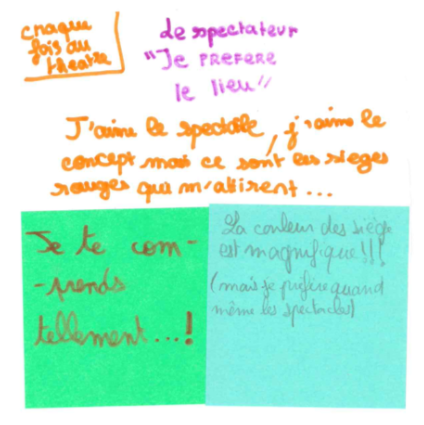 chaque
fois au
theatre
de spectateur
"Je PREFERE
le lieu"
J'aime le spectacle, j'aime le
concept mais ce sont les sieges
rouges qui m'attirent...
Je te com-
-prends
tellement...!
La couleur des sièges
est magnifique!!!
(mais je préfère quand
même les spectacles)